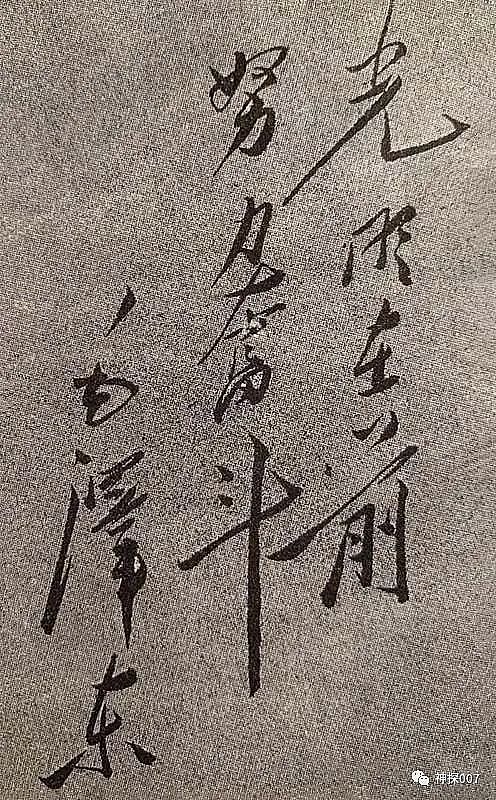 光明在前
努力奋斗
毛泽东
神探007